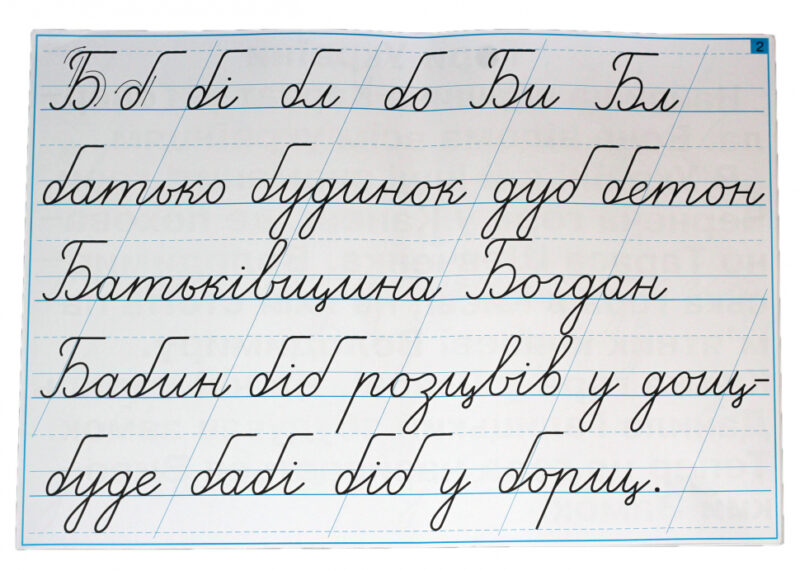 2
Б б бі бл бо Би Бл
батько будинок дуб бетон
Батьківщина Богдан
Бабин біб розцвів у дощ-
буде бабі біб у борщ.